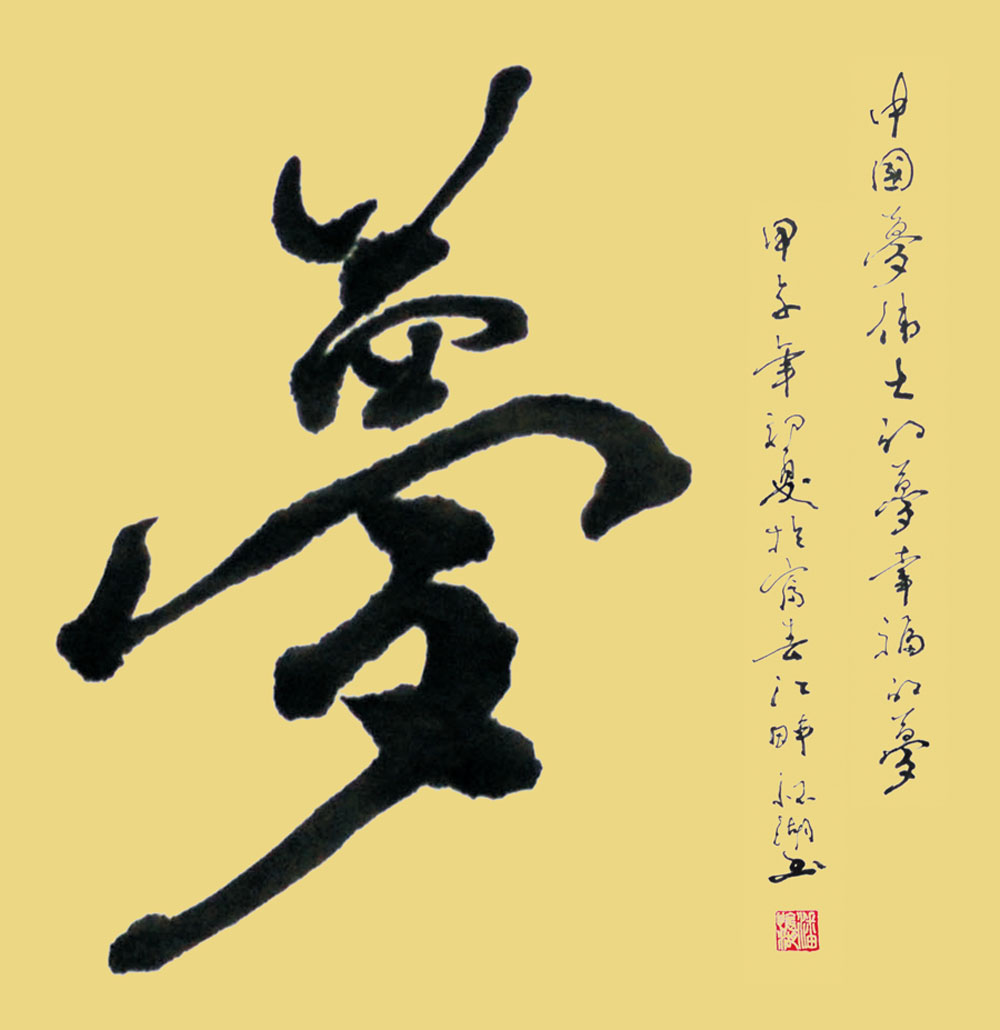 夢
中國夢偉大的夢幸福的夢
甲午年初夏於富春江畔湖書